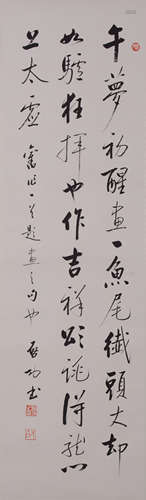 午夢初醒畫一魚尾纖頭大却
如驢狂拜也作吉祥頌詭得龍
上太虛 舊作一首題畫之句也 啟功書